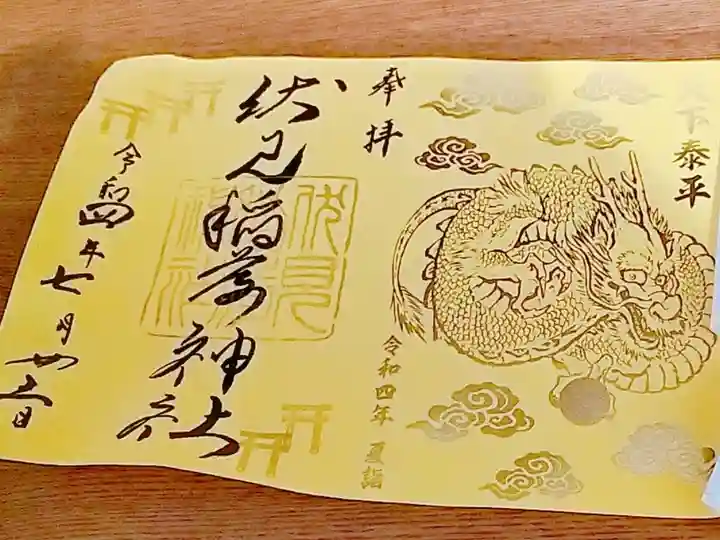 下泰平
奉拝
令和四年 夏詣
伏見稲荷神社
伏見
令和四年七月廿三日